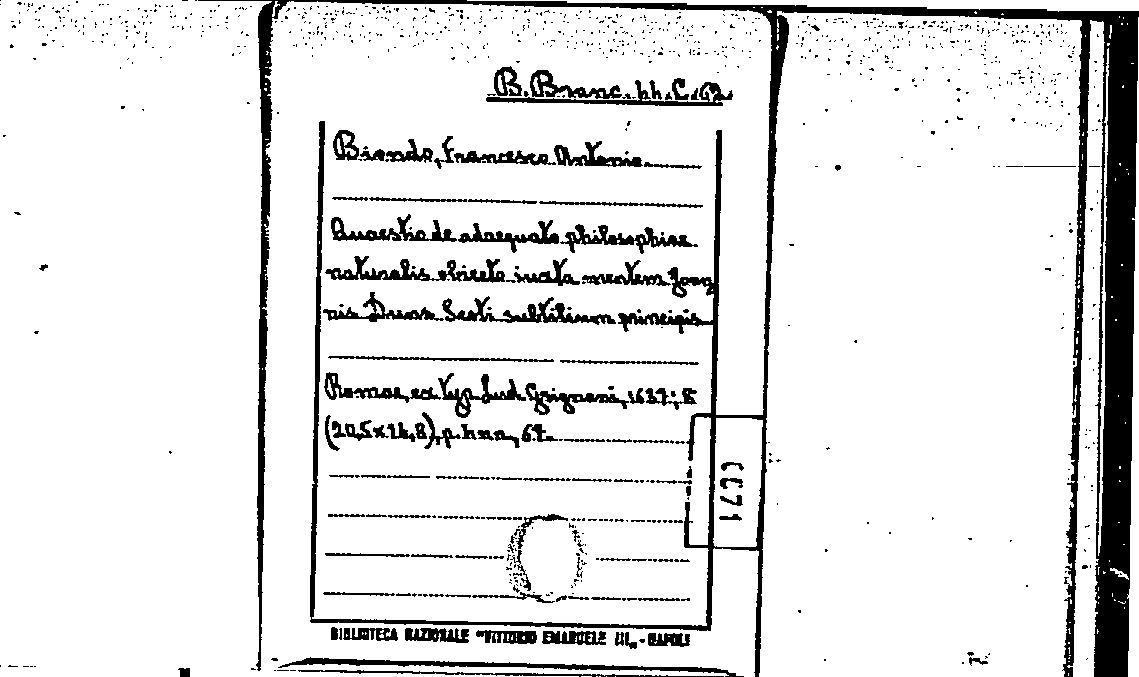 B. Branc. hh. C. 62
Biondo, Francesco Antonio.
Quaestio de adaequato philosophiae
naturalis obiecto iuxta mentem Joan
nis Duns Scoti subtilium principis
Romae, ex typ. Lud. Grignani, 1637; 8
(20,5x14,8), p. 67.
0071
BIBLIOTECA NAZIONALE "VITTORIO EMANUELE III„ - NAPOLI